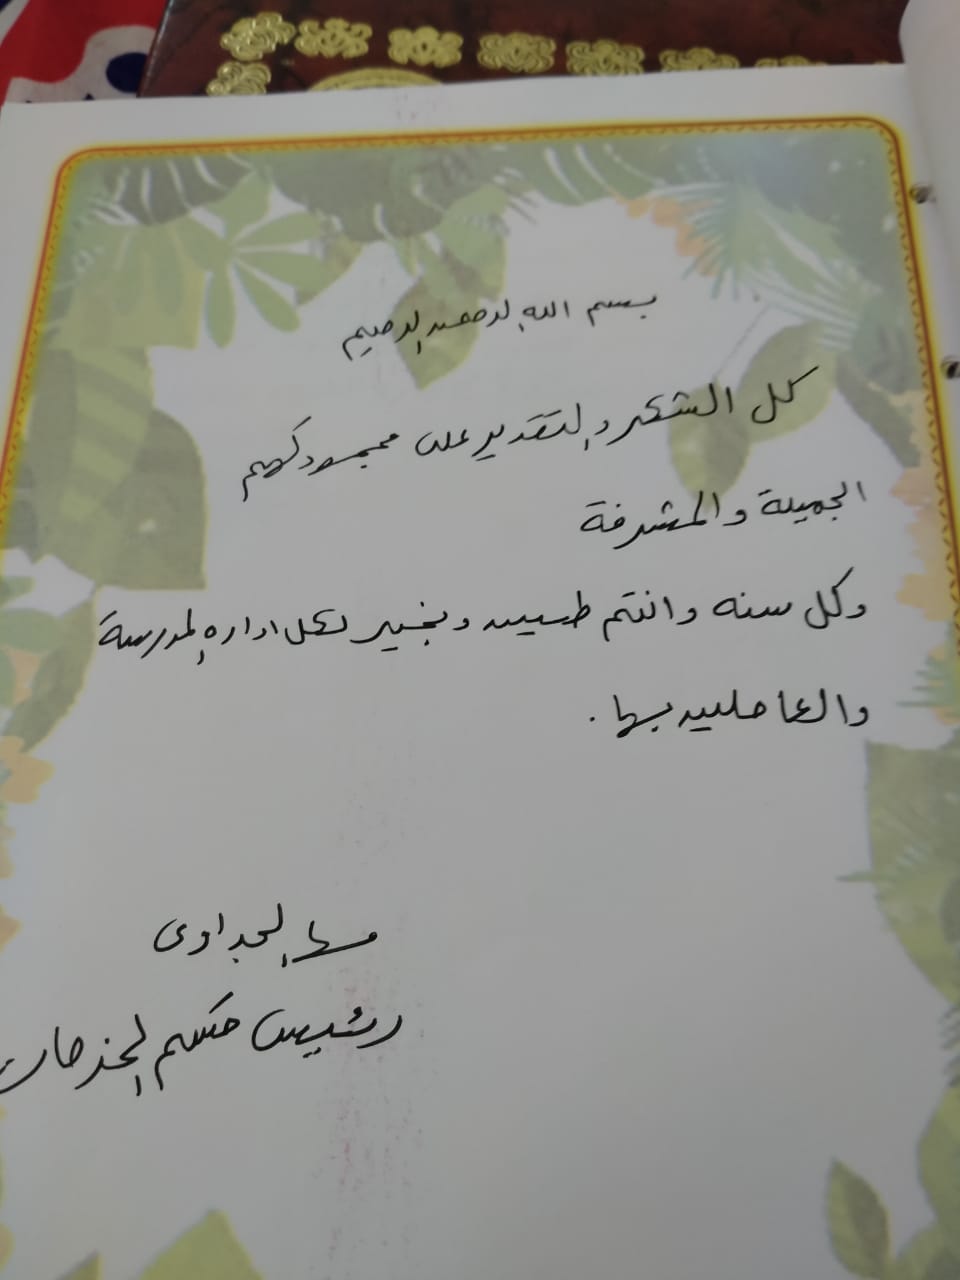 بسم الله الرحمن الرحيم
كل الشكر والتقدير على مجهودكم
الجميلة والمشرفة
وكل سنه وانتم طيبين وبخير لكل اداره المدرسة
والعاملين بها.
مها الجداوى
رئيس قسم الخدمات